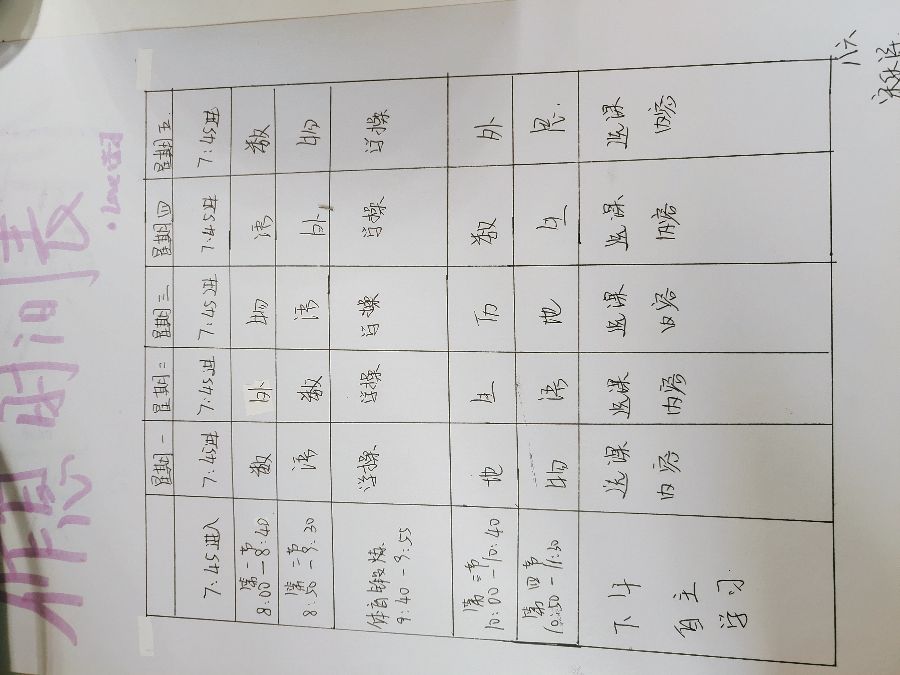 作息时间表
星期一 星期二 星期三 星期四 星期五
7:45进入 7:45进 7:45进 7:45进 7:45进 7:45进
第一节
8:00-8:40 数 外 物 语 数
第二节
8:50-9:30 语 数 语 外 物
体育锻炼
9:40-9:55 学操 学操 学操 学操 学操
第三节
10:00-10:40 地 生 历 数 外
第四节
10:50-11:30 物 语 地 生
下午 选课 选课 选课 选课 选课
自主 内容 内容 内容 内容 内容
学习
八六